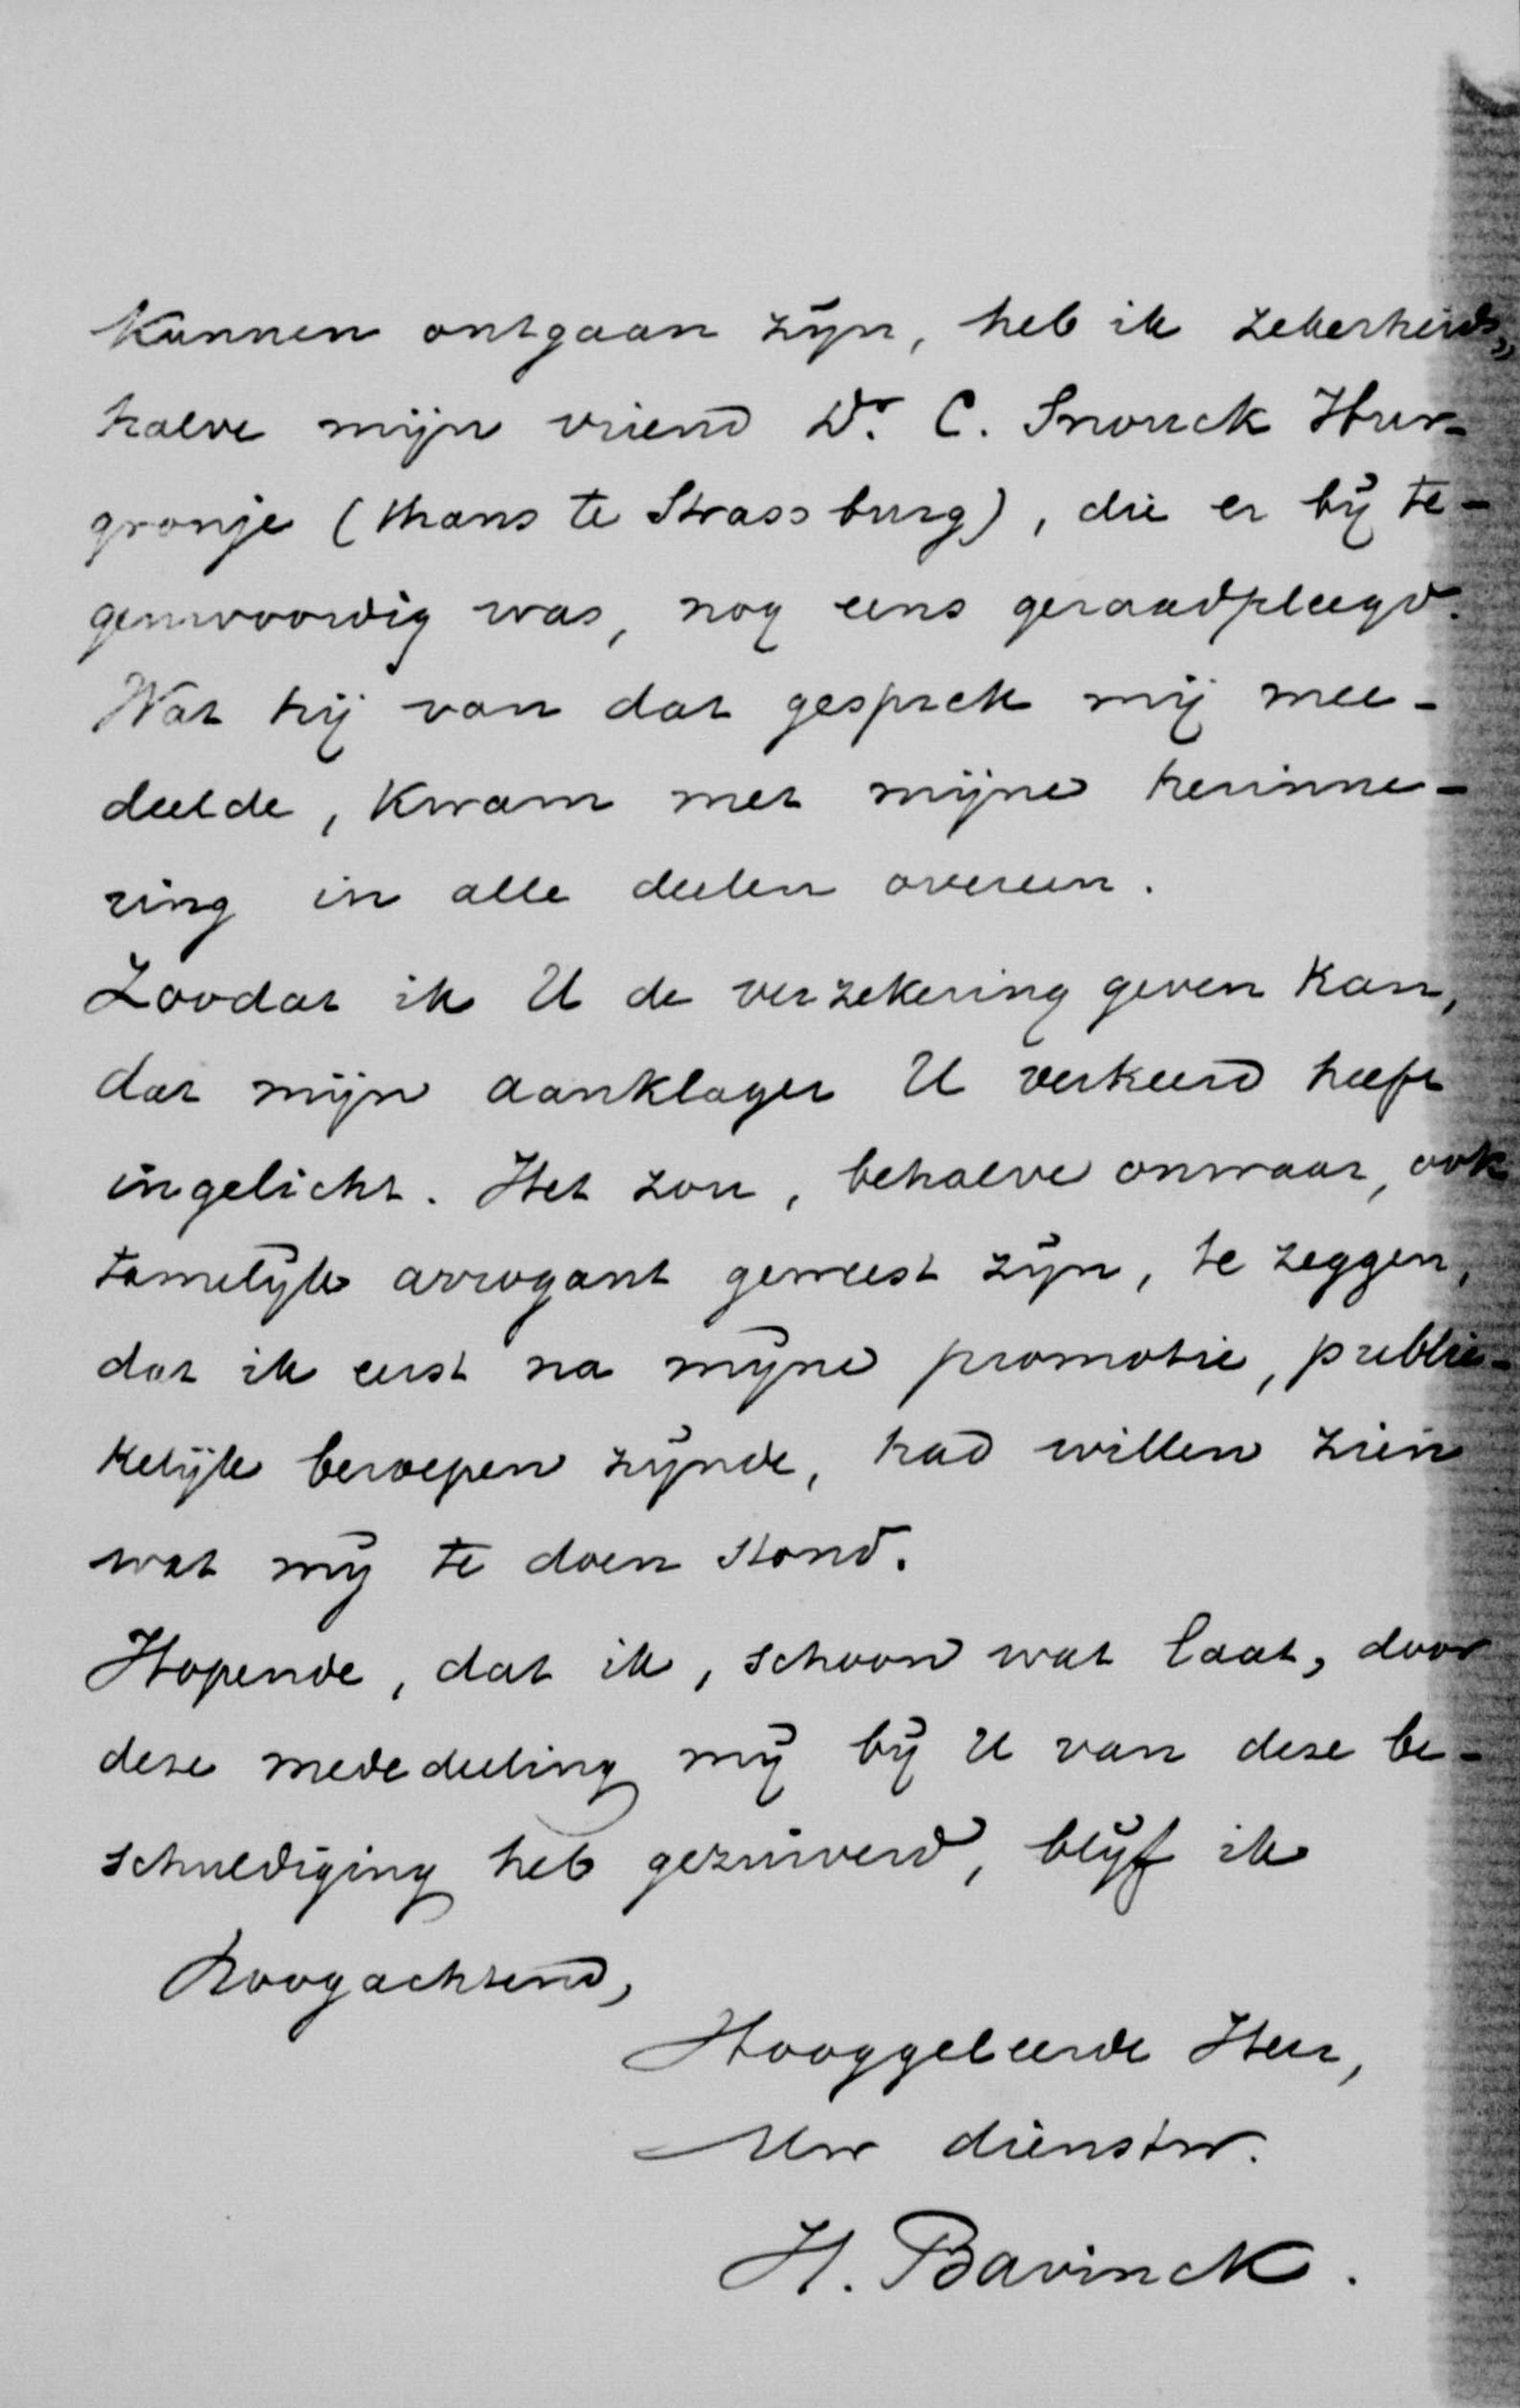 kunnen ontgaan zijn, heb ik zekerheids„
halve mijn vriend Dr. C. Snouck Hur-
gronje (thans te Strassburg), die er bij te-
genwoordig was, nog eens geraadpleegd.
Wat hij van dat gesprek mij mee-
deelde, kwam met mijne herinne-
ring in alle deelen overeen.
Zoodat ik U de verzekering geven kan,
dat mijn aanklager U verkeerd heeft
ingelicht. Het zou, behalve onwaar, ook
tamelijk arrogant geweest zijn, te zeggen,
dat ik eerst na mijne promotie, publie-
kelijk beroepen zijnde, had willen zien
wat mij te doen stond.
Hopende, dat ik, schoon wat laat, door
deze mededeeling mij bij U van deze be-
schuldiging heb gezuiverd, blijf ik
hoogachtend,
Hooggeleerde Heer,
Uw dienstw.
H. Bavinck.